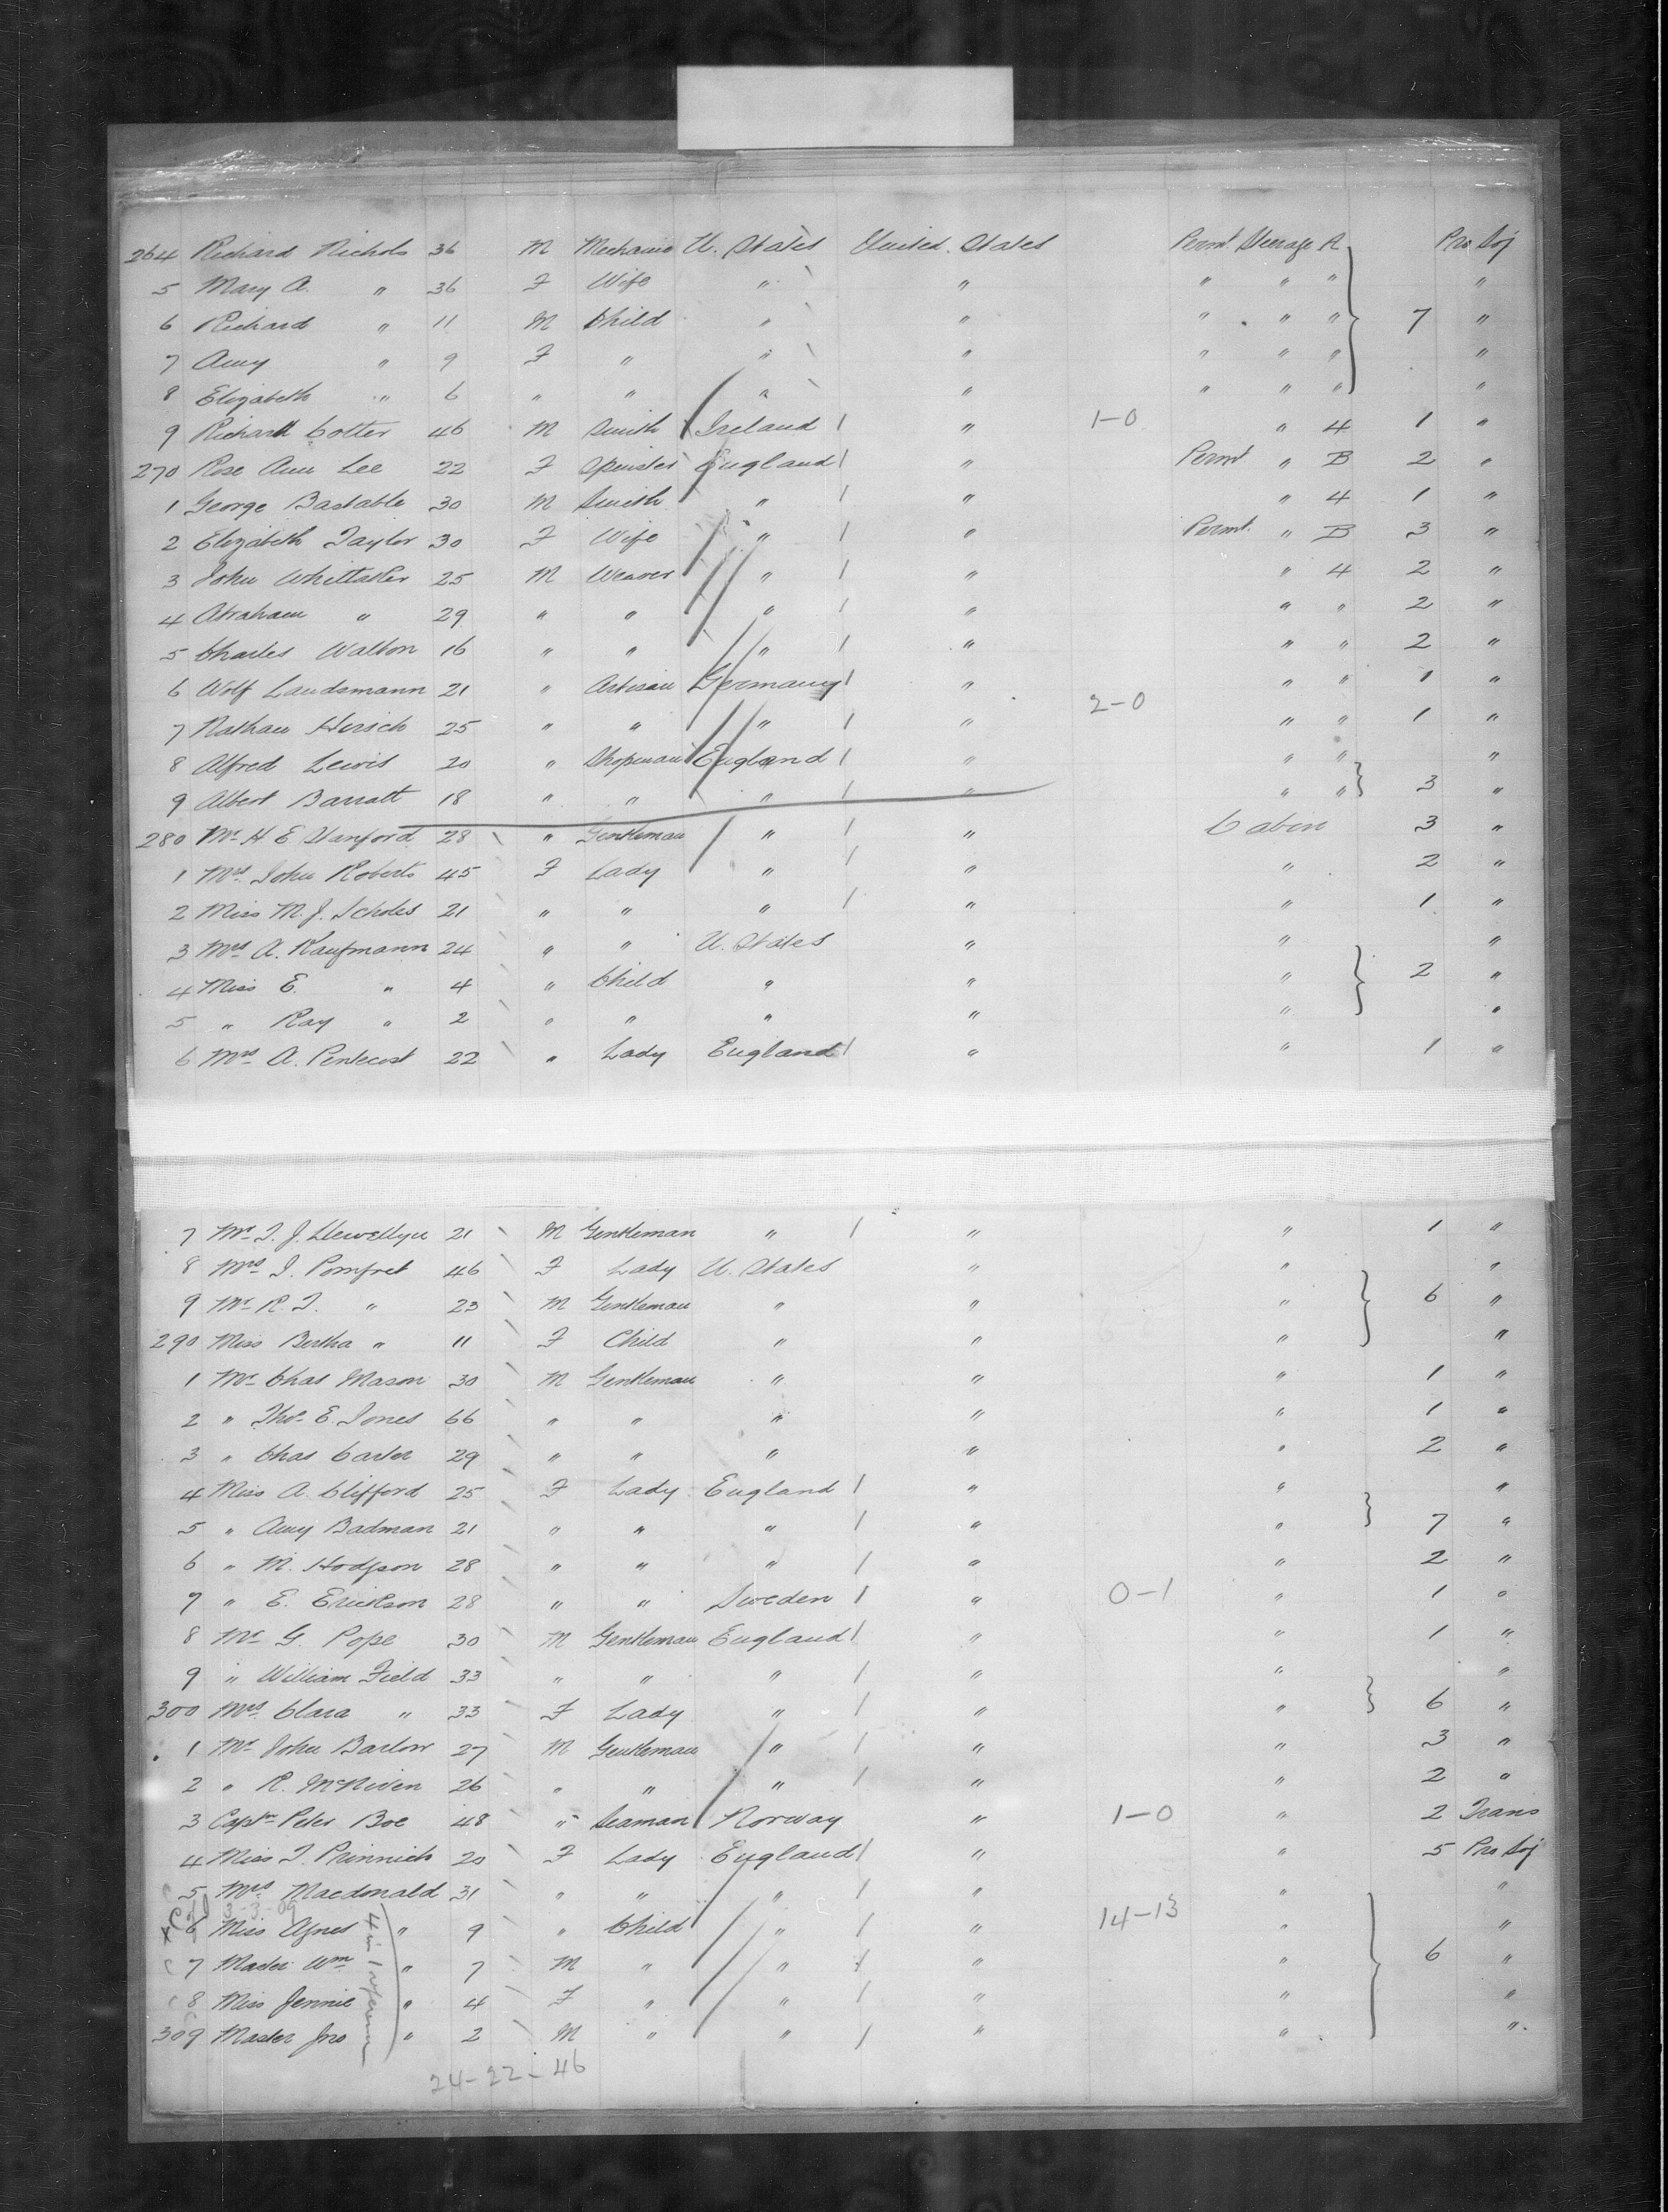 264 Richard Nichols 36 M Mechanic U. States United States Permt Steerage A Pro Soj
5 Mary A. " 36 F Wife " " " " " "
6 Richard " 11 M Child " " " " " 7 "
7 Amy " 9 F " " " " " " "
8 Elizabeth " 6 " " " " " " " "
9 Richard Cotter 46 M Smith Ireland " 1-0 " 4 1 "
270 Rose Ann Lee 22 F Spinster England " Permt " B 2 "
1 George Bastable 30 M Smith " " " 4 1 "
2 Elizabeth Taylor 30 F Wife " " Permt. " B 3 "
3 John Whittaker 25 M Weaver " " " 4 2 "
4 Abraham " 29 " " " " " " 2 "
5 Charles Walton 16 " " " " " " 2 "
6 Wolf Landsmann 21 " Artisan Germany " " " 1 "
7 Nathan Hirsch 25 " " " " 2-0 " " 1 "
8 Alfred Lewis 20 " Shopman England " " " "
9 Albert Barratt 18 " " " " " " 3 "
280 Mr H E Stanford 28 " Gentleman " " Cabin 3 "
1 Mrs John Roberts 45 F Lady " " " 2 "
2 Miss M. J. Scholes 21 " " " " " 1 "
3 Mrs A. Kaufmann 24 " " U. States " " "
4 Miss E. " 4 " Child " " " 2 "
5 " Ray " 2 " " " " " "
6 Mrs A. Pentecost 22 " Lady England " " 1 "
7 Mr T. J. Llewellyn 21 M Gentleman " " " 1 "
8 Mrs I. Pomfret 46 F Lady U. States " " "
9 Mr R. I. " 23 M Gentleman " " " 6 "
290 Miss Bertha " 11 F Child " " " "
1 Mr Chas Mason 30 M Gentleman " " " 1 "
2 " Thos E. Jones 66 " " " " " 1 "
3 " Chas Carter 29 " " " " " 2 "
4 Miss A. Clifford 25 F Lady England " " "
5 " Amy Badman 21 " " " " " 7 "
6 " M. Hodgson 28 " " " " " 2 "
7 " E. Erickson 28 " " Sweden " 0-1 " 1 "
8 Mr G. Pope 30 M Gentleman England " " 1 "
9 " William Field 33 " " " " " "
300 Mrs Clara " 33 F Lady " " " 6 "
1 Mr John Barlow 27 M Gentleman " " " 3 "
2 " R. McNiven 26 " " " " " 2 "
3 Captn Peter Boe 48 " Seaman Norway " 1-0 " 2 Trans
4 Miss I. Prinnich 20 F Lady England " " 5 Pro Soj
5 Mrs Macdonald 31 " " " " " "
3-3-09
6 Miss Agnes " 9 " Child " " 14-13 " "
7 Master Wm " 7 M " " " " 6 "
8 Miss Jennie " 4 F " " " " "
309 Master Jno " 2 M " " " " "
24-22-46